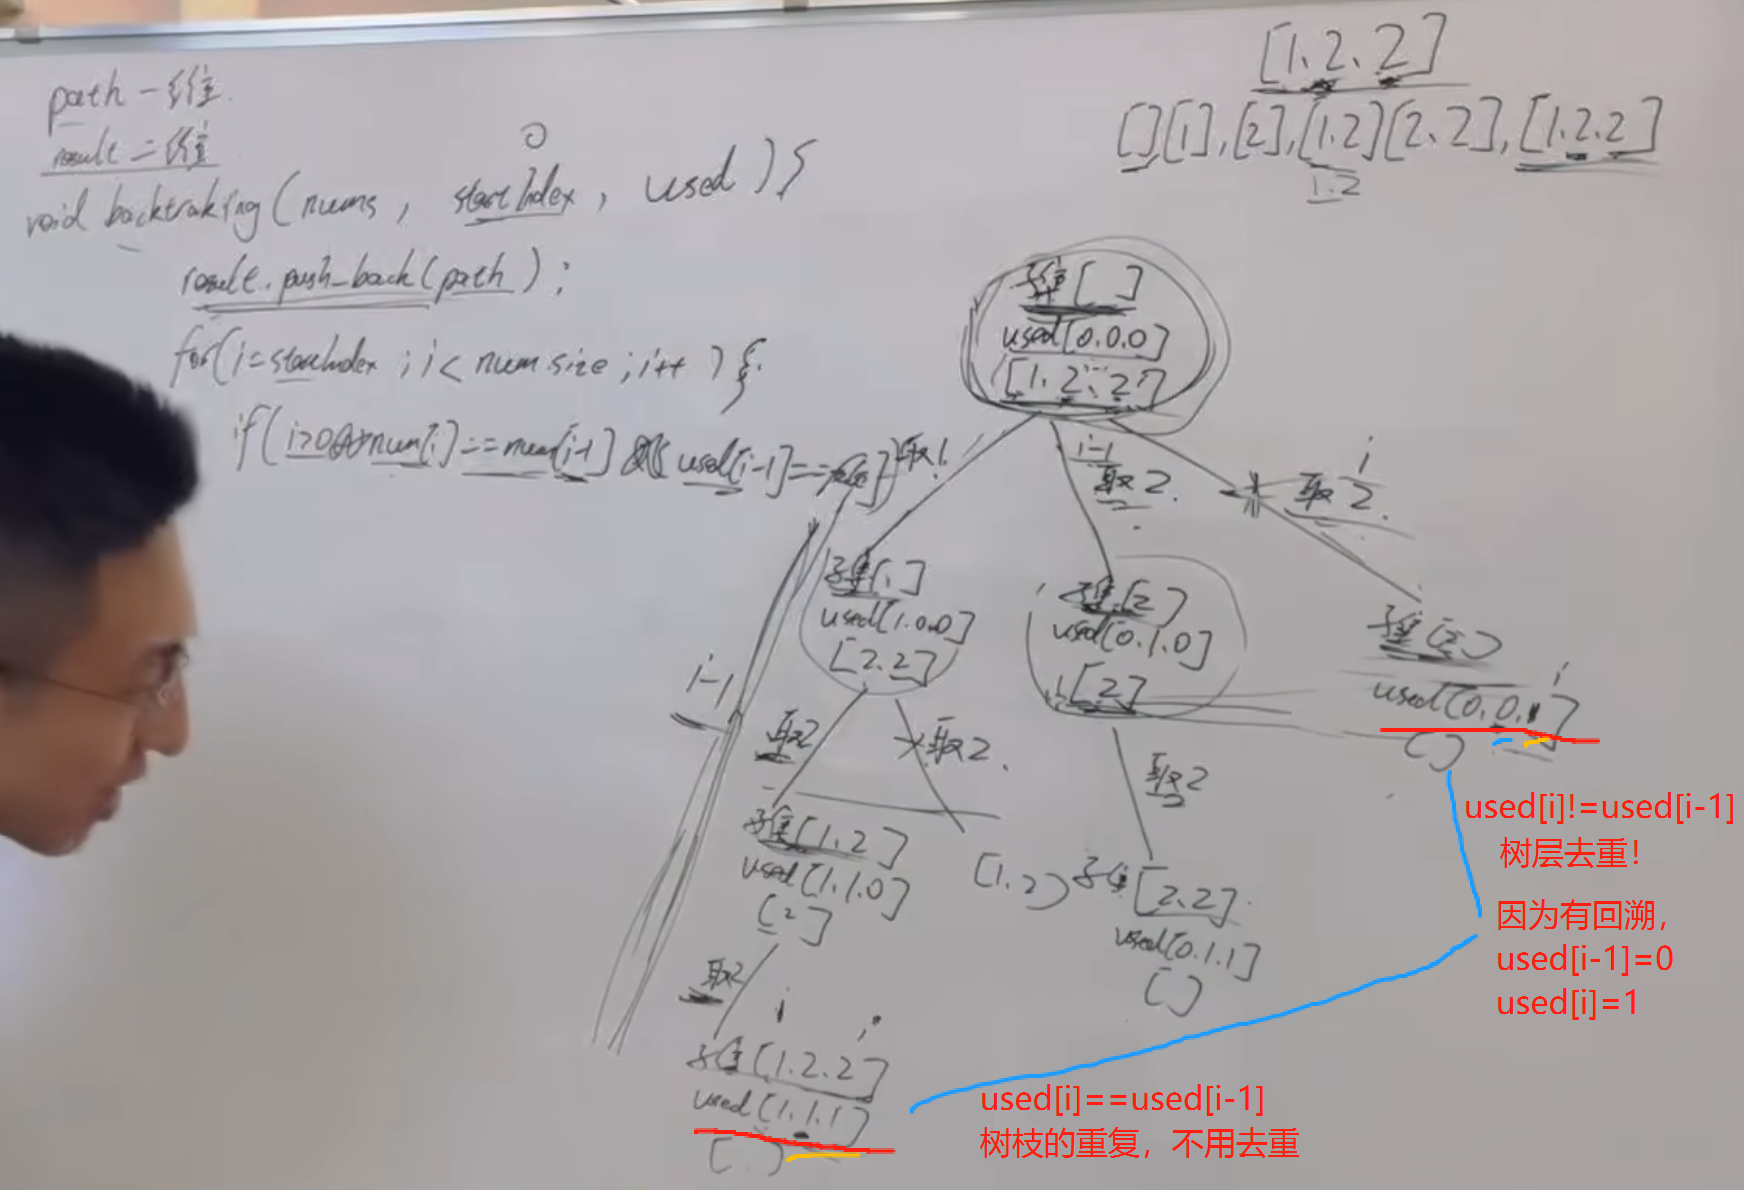 path 一维
result 二维
void backtraking(nums, startIndex, used){
result.push_back(path);
for(i=startIndex;i<num.size;i++){
if(i>0&&num[i]==num[i-1]&&used[i-1]==false)
[1.2.2]
[][1],[2],[1.2][2.2],[1.2.2]
1.2
子集[ ]
used[0.0.0]
[1.2.2]
取1
i-1
取2.
i
取2.
子集[1]
used[1.0.0]
[2.2]
子集[2]
used[0.1.0]
[2]
子集[2]
i
used[0.0.1]
[ ]
i-1
取2
取2.
取2
子集[1.2]
used[1.1.0]
[2]
[1.2]
子集[2.2]
used[0.1.1]
[ ]
取2
i
子集[1.2.2]
used[1.1.1]
[ ]
used[i]!=used[i-1]
树层去重!
因为有回溯,
used[i-1]=0
used[i]=1
used[i]==used[i-1]
树枝的重复，不用去重